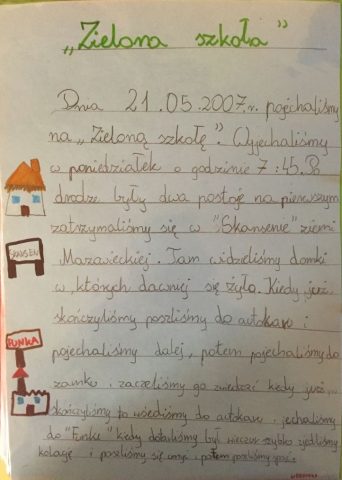 „Zielona szkoła”
Dnia 21.05.2007.r. pojechaliśmy
na „Zieloną szkołę”. Wyjechaliśmy
w poniedziałek o godzinie 7:45. Po
drodze były dwa postoje na pierwszym
zatrzymaliśmy się w "Skansenie" ziemi
Mazowieckiej. Tam widzieliśmy domki
SKANSEN
w których dawniej się żyło. Kiedy już
skończyliśmy poszliśmy do autokaru i
FUNKA
pojechaliśmy dalej, potem pojechaliśmy do
zamku i zaczeliśmy go zwiedzać kiedy już
skończyliśmy to wsiedliśmy do autokaru i jechaliśmy
do "Funki" kiedy dotarliśmy był wieczur szybko zjedliśmy
kolację i poszliśmy się umyć i potem poszliśmy spać.